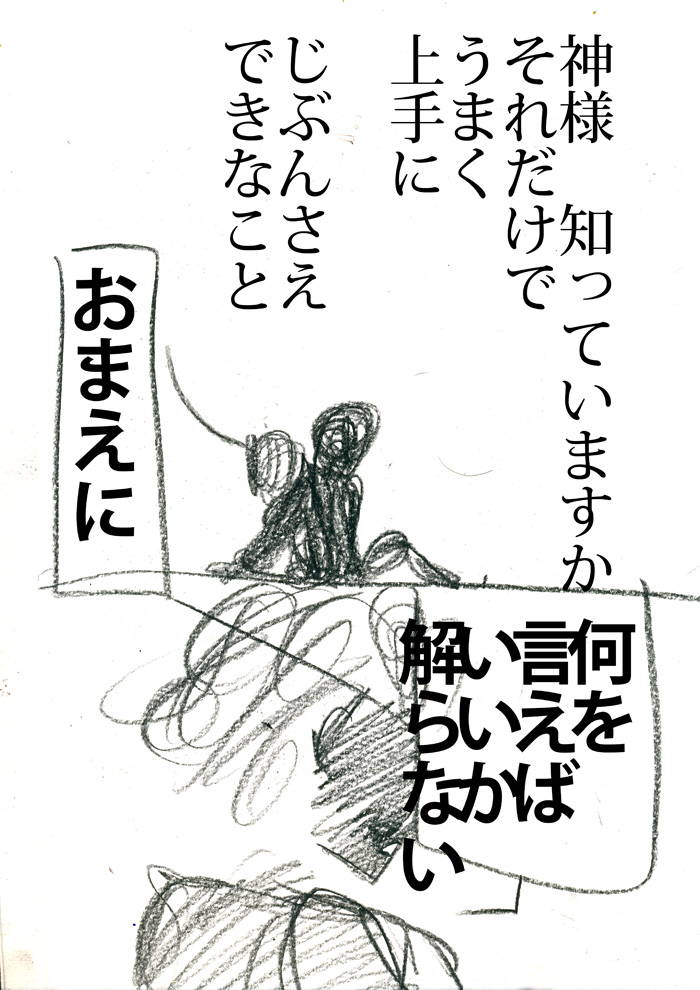 神様　知っていますか
それだけで
うまく
上手に
じぶんさえ
できなこと
おまえに
何を
言えば
いいか
解らない